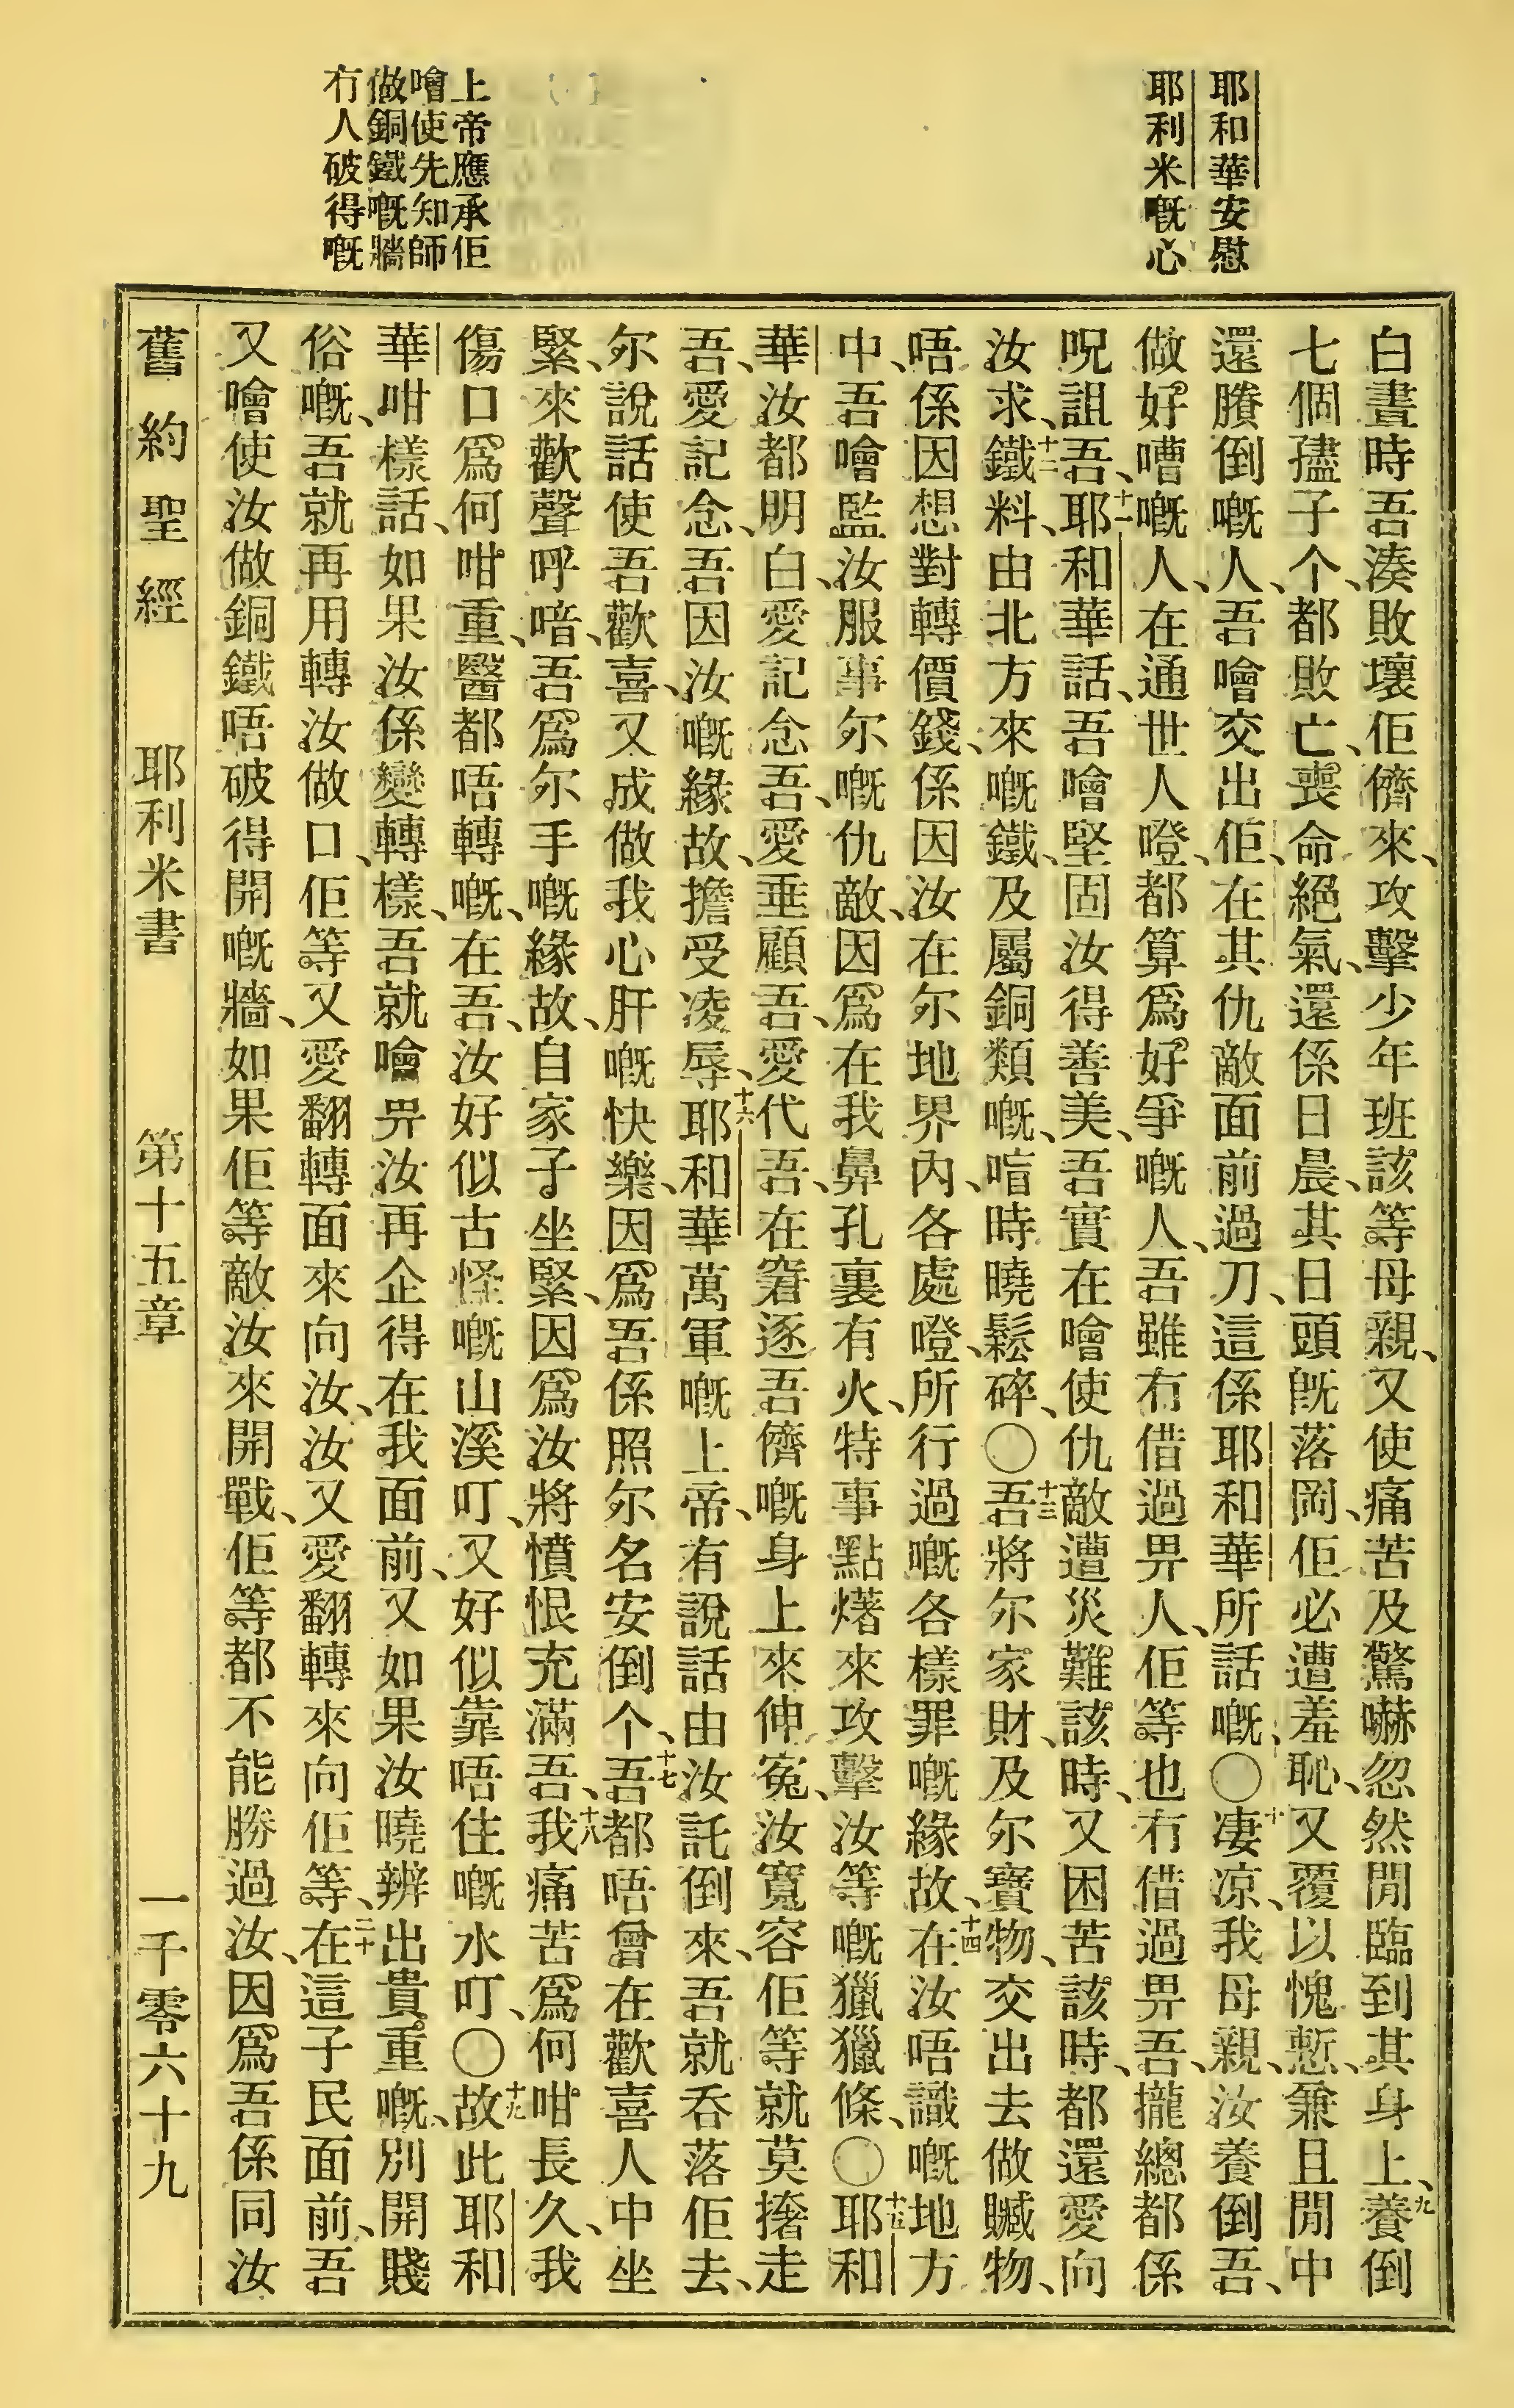 耶和華安慰
耶利米嘅心
上帝應承佢
噲使先知師
做銅鐵嘅牆
冇人破得嘅
白晝時吾湊敗壞佢儕來、攻擊少年班該等母親、又使痛苦及驚嚇忽然閒臨到其身上、九養倒
七個孻子个、都敗亡、喪命絕氣、還係日晨、其日頭旣落岡、佢必遭羞恥、又覆以愧慙、兼且閒中
還賸倒嘅人、吾噲交出佢、在其仇敵面前過刀、這係耶和華所話嘅、〇十凄凉、我母親、汝養倒吾、
做好嘈嘅人、在通世人噔、都算爲好爭嘅人、吾雖冇借過畀人、佢等也冇借過畀吾、攏總都係
呪詛吾、十一耶和華話、吾噲堅固汝得善美、吾實在噲使仇敵遭災難、該時、又困苦該時、都還愛向
汝求、十二鐵料、由北方來嘅鐵、及屬銅類嘅、喧時曉鬆碎、〇十三吾將尔家財、及尔寶物、交出去做贓物、
唔係因想對轉價錢、係因汝在尔地界內、各處噔、所行過嘅各樣罪嘅緣故、十四在汝唔識嘅地方
中、吾噲監汝服事尔嘅仇敵、因爲在我鼻孔裏有火、特事點𤏸來攻擊汝等嘅獵獵條、〇十五耶和
華汝都明白、愛記念吾、愛垂顧吾、愛代吾、在窘逐吾儕嘅身上來伸寃、汝寬容佢等就莫撦走
吾、愛記念、吾因汝嘅緣故、擔受凌辱、十六耶和華萬軍嘅上帝、有說話由汝託倒來、吾就呑落佢去、
尔說話使吾歡喜、又成做我心肝嘅快樂、因爲吾係照尔名安倒个、十七吾都唔曾在歡喜人中坐
緊、來歡聲呼喑、吾爲尔手嘅緣故、自家子坐緊、因爲汝將憤恨充滿吾、十八我痛苦爲何咁長久、我
傷口爲何咁重、醫都唔轉嘅、在吾、汝好似古怪嘅山溪叮、又好似靠唔住嘅水叮、〇十九故此耶和
華咁樣話、如果汝係變轉樣、吾就噲畀汝再企得在我面前、又如果汝曉辨出貴重嘅、別開賤
俗嘅、吾就再用轉汝做口、佢等又愛翻轉面來向汝、汝又愛翻轉來向佢等、二十在這子民面前、吾
又噲使汝做銅鐵唔破得開嘅牆、如果佢等敵汝來開戰、佢等都不能勝過汝、因爲吾係同汝
舊約聖經　耶利米書　第十五章　一千零六十九